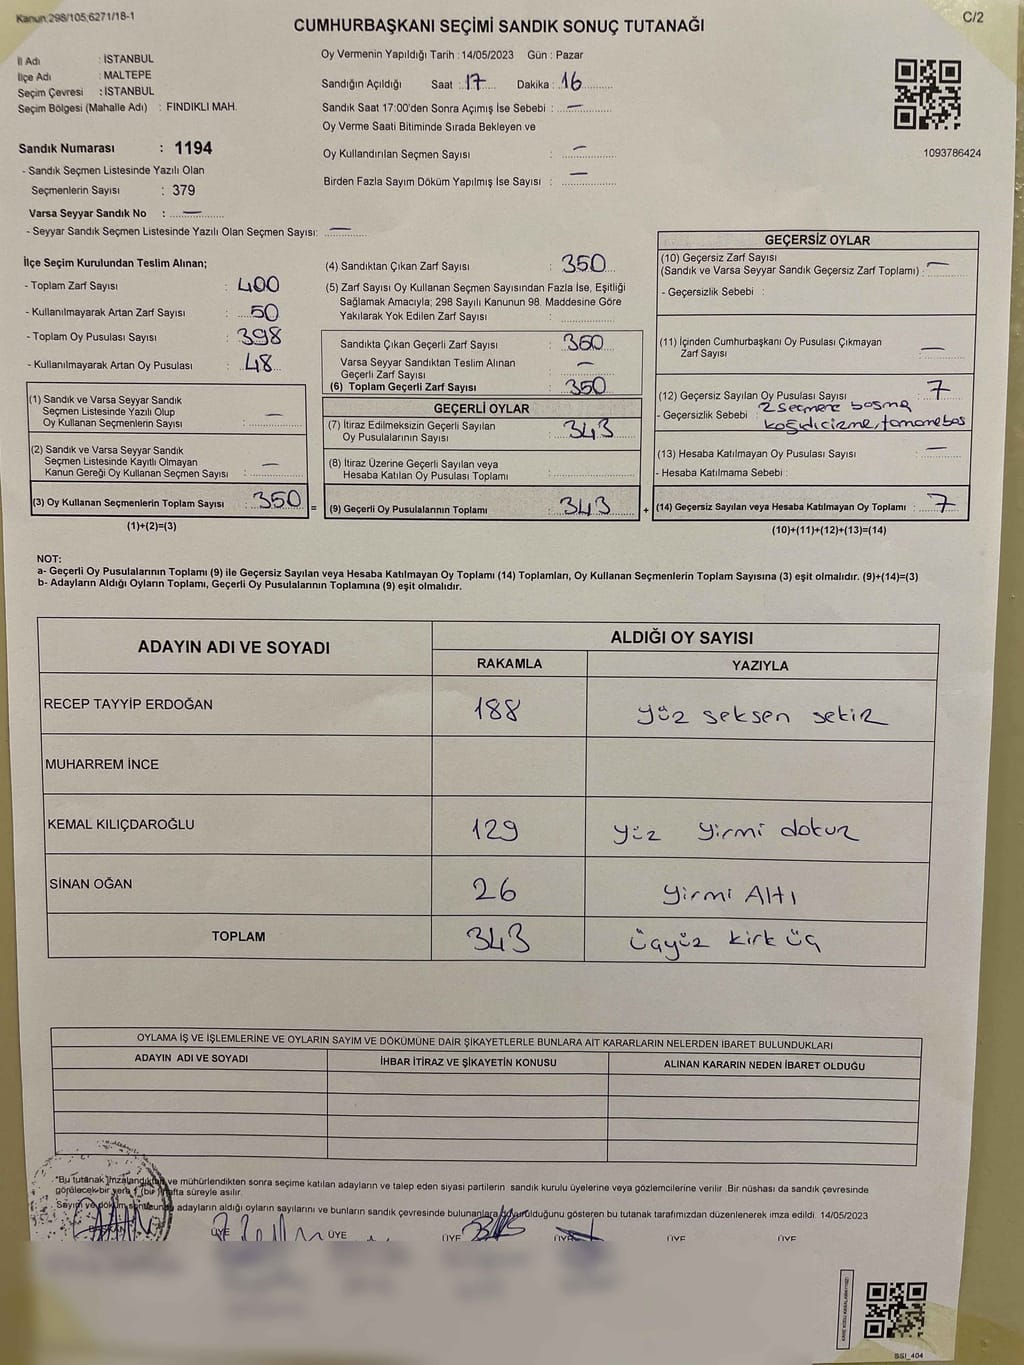 Kanun:298/105,6271/18-1
C/2
CUMHURBAŞKANI SEÇİMİ SANDIK SONUÇ TUTANAĞI
İl Adı : İSTANBUL
İlçe Adı : MALTEPE
Seçim Çevresi : İSTANBUL
Seçim Bölgesi (Mahalle Adı) : FINDIKLI MAH.
Sandık Numarası : 1194
- Sandık Seçmen Listesinde Yazılı Olan
Seçmenlerin Sayısı : 379
Varsa Seyyar Sandık No : —
- Seyyar Sandık Seçmen Listesinde Yazılı Olan Seçmen Sayısı: —
Oy Vermenin Yapıldığı Tarih : 14/05/2023 Gün : Pazar
Sandığın Açıldığı Saat : 17 Dakika : 16
Sandık Saat 17:00'den Sonra Açımış İse Sebebi : —
Oy Verme Saati Bitiminde Sırada Bekleyen ve
Oy Kullandırılan Seçmen Sayısı : —
Birden Fazla Sayım Döküm Yapılmış İse Sayısı : —
1093786424
İlçe Seçim Kurulundan Teslim Alınan;
- Toplam Zarf Sayısı : 400
- Kullanılmayarak Artan Zarf Sayısı : 50
- Toplam Oy Pusulası Sayısı : 398
- Kullanılmayarak Artan Oy Pusulası : 48
(1) Sandık ve Varsa Seyyar Sandık
Seçmen Listesinde Yazılı Olup
Oy Kullanan Seçmenlerin Sayısı : —
(2) Sandık ve Varsa Seyyar Sandık
Seçmen Listesinde Kayıtlı Olmayan
Kanun Gereği Oy Kullanan Seçmen Sayısı : —
(3) Oy Kullanan Seçmenlerin Toplam Sayısı : 350
(1)+(2)=(3)
(4) Sandıktan Çıkan Zarf Sayısı : 350
(5) Zarf Sayısı Oy Kullanan Seçmen Sayısından Fazla İse, Eşitliği
Sağlamak Amacıyla; 298 Sayılı Kanunun 98. Maddesine Göre
Yakılarak Yok Edilen Zarf Sayısı :
Sandıkta Çıkan Geçerli Zarf Sayısı : 350
Varsa Seyyar Sandıktan Teslim Alınan
Geçerli Zarf Sayısı : —
(6) Toplam Geçerli Zarf Sayısı : 350
GEÇERLİ OYLAR
(7) İtiraz Edilmeksizin Geçerli Sayılan
Oy Pusulalarının Sayısı : 343
(8) İtiraz Üzerine Geçerli Sayılan veya
Hesaba Katılan Oy Pusulası Toplamı :
(9) Geçerli Oy Pusulalarının Toplamı : 343
=
+
GEÇERSİZ OYLAR
(10) Geçersiz Zarf Sayısı
(Sandık ve Varsa Seyyar Sandık Geçersiz Zarf Toplamı) : —
- Geçersizlik Sebebi :
(11) İçinden Cumhurbaşkanı Oy Pusulası Çıkmayan
Zarf Sayısı : —
(12) Geçersiz Sayılan Oy Pusulası Sayısı : 7
- Geçersizlik Sebebi : 2 seçmene basma
(13) Hesaba Katılmayan Oy Pusulası Sayısı : —
- Hesaba Katılmama Sebebi :
(14) Geçersiz Sayılan veya Hesaba Katılmayan Oy Toplamı : 7
(10)+(11)+(12)+(13)=(14)
NOT:
a- Geçerli Oy Pusulalarının Toplamı (9) ile Geçersiz Sayılan veya Hesaba Katılmayan Oy Toplamı (14) Toplamları, Oy Kullanan Seçmenlerin Toplam Sayısına (3) eşit olmalıdır. (9)+(14)=(3)
b- Adayların Aldığı Oyların Toplamı, Geçerli Oy Pusulalarının Toplamına (9) eşit olmalıdır.
ADAYIN ADI VE SOYADI
ALDIĞI OY SAYISI
RAKAMLA YAZIYLA
RECEP TAYYİP ERDOĞAN 188 yüz seksen sekiz
MUHARREM İNCE
KEMAL KILIÇDAROĞLU 129 yüz yirmi dokuz
SİNAN OĞAN 26 yirmi Altı
TOPLAM 343 üçyüz kirk üç
OYLAMA İŞ VE İŞLEMLERİNE VE OYLARIN SAYIM VE DÖKÜMÜNE DAİR ŞİKAYETLERLE BUNLARA AİT KARARLARIN NELERDEN İBARET BULUNDUKLARI
ADAYIN ADI VE SOYADI İHBAR İTİRAZ VE ŞİKAYETİN KONUSU ALINAN KARARIN NEDEN İBARET OLDUĞU
"Bu tutanak imzalandıktan ve mühürlendikten sonra seçime katılan adayların ve talep eden siyasi partilerin sandık kurulu üyelerine veya gözlemcilerine verilir. Bir nüshası da sandık çevresinde
görülecek bir yere 1 (bir) hafta süreyle asılır.
Sayım ve döküm sonucunda adayların aldığı oyların sayılarını ve bunların sandık çevresinde bulunanlara duyurulduğunu gösteren bu tutanak tarafımızdan düzenlenerek imza edildi. 14/05/2023
BAŞKAN ÜYE ÜYE ÜYE ÜYE ÜYE ÜYE
SSI_404